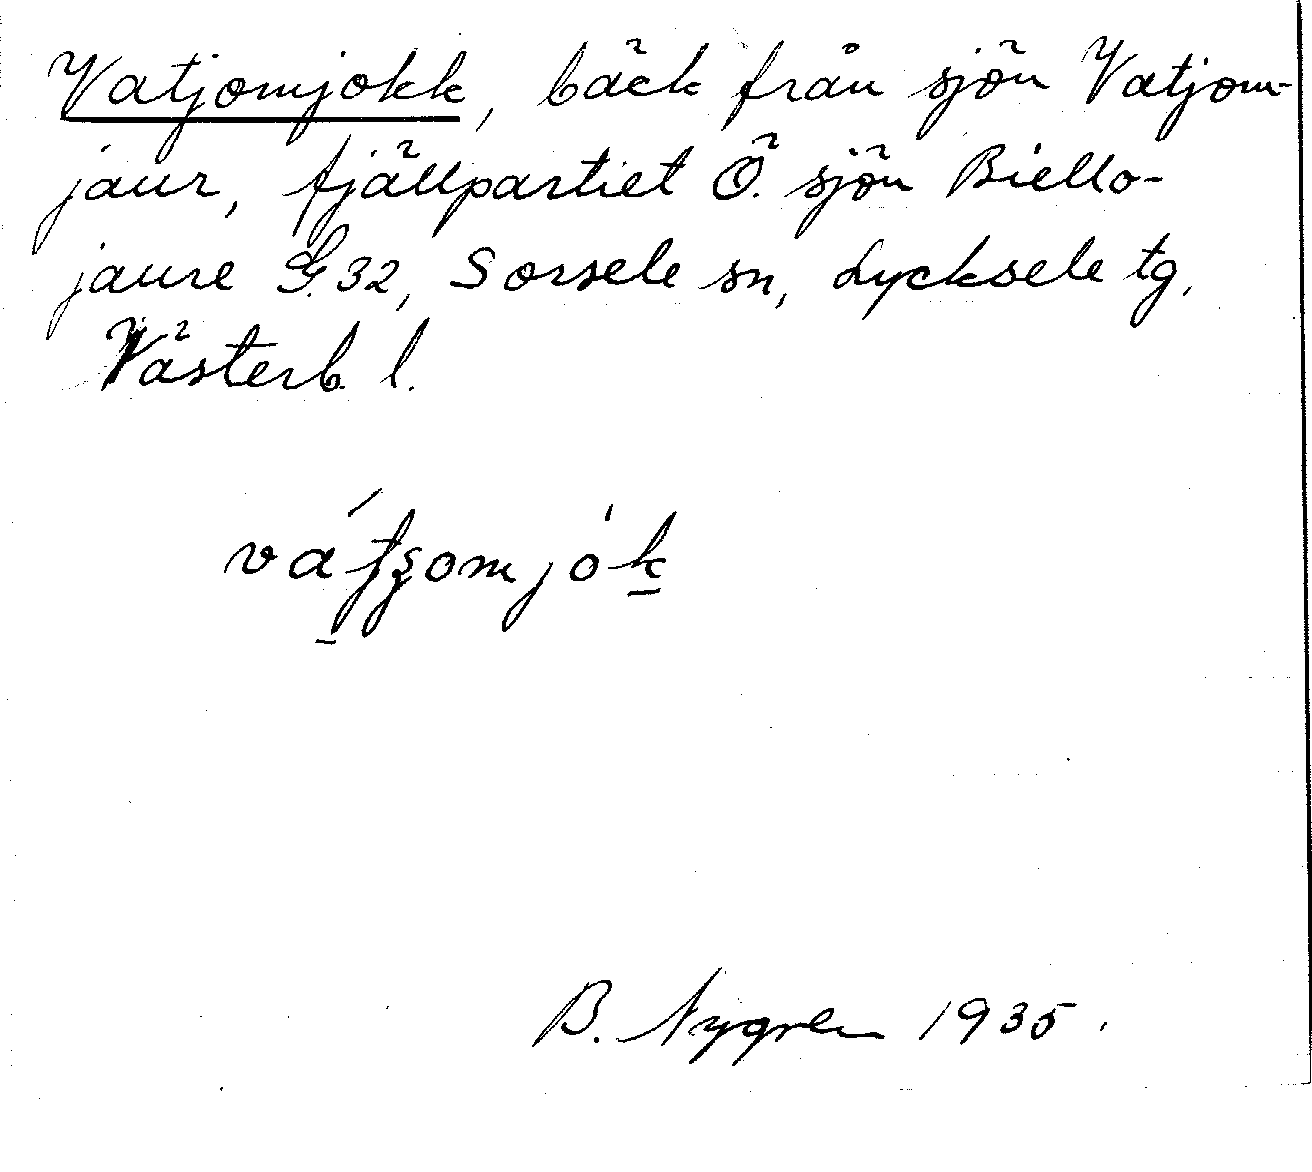 Vatjomjokk, bäck från sjön Vatjom-
jaur, fjällpartiet Ö. sjön Biello-
jaure G.32, Sorsele sn, Lycksele tg,
Västerb. l.
B. Nygren 1935.